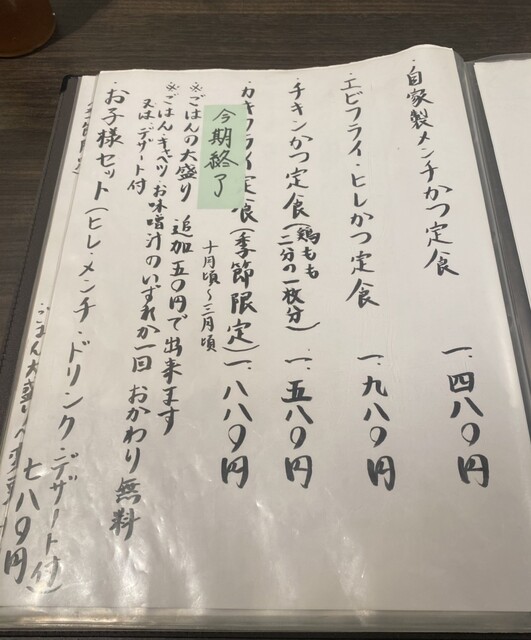 ・自家製メンチかつ定食 一、四八〇円
・エビフライ・ヒレかつ定食 一、九八〇円
・チキンかつ定食(鶏もも二分の一枚分) 一、五八〇円
・カキフライ定食(季節限定) 一、八八〇円
今期終了
十月頃〜三月頃
※ごはんの大盛り 追加五〇円で出来ます
※ごはん・キャベツ・お味噌汁のいずれか一回 おかわり無料
又は、デザート付
・お子様セット(ヒレ・メンチ・ドリンク・デザート付) 七八〇円